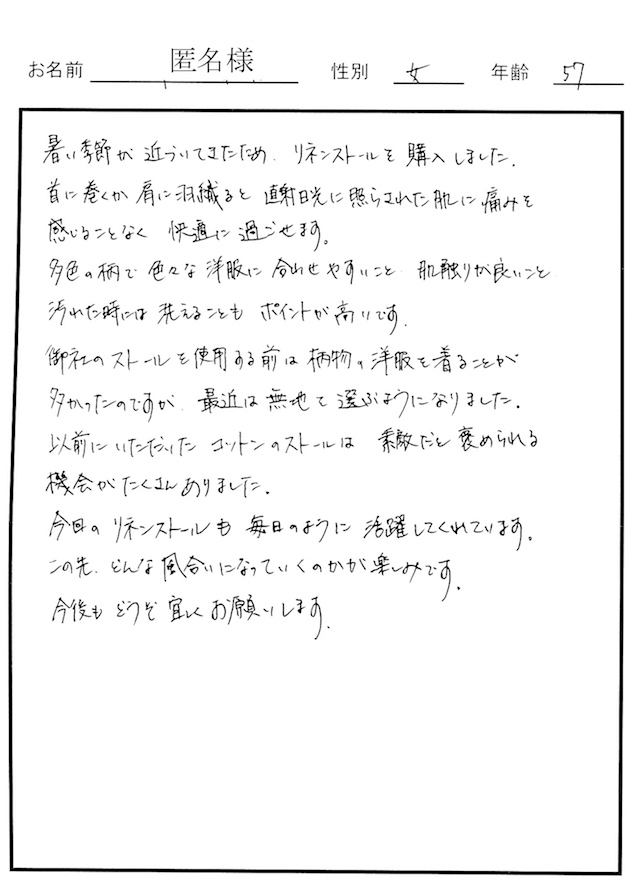 お名前 匿名様 性別 女 年齢 57
暑い季節が近づいてきたため、リネンストールを購入しました。
首に巻くか肩に羽織ると直射日光に照らされた肌に痛みを
感じることなく快適に過ごせます。
多色の柄で色々な洋服に合わせやすいこと、肌触りが良いこと
汚れた時には洗えることもポイントが高いです。
御社のストールを使用する前は柄物の洋服を着ることが
多かったのですが、最近は無地で選ぶようになりました。
以前にいただいたコットンのストールは素敵だと褒められる
機会がたくさんありました。
今回のリネンストールも毎日のように活躍してくれています。
この先、どんな風合いになっていくのかが楽しみです。
今後もどうぞ宜しくお願いします。